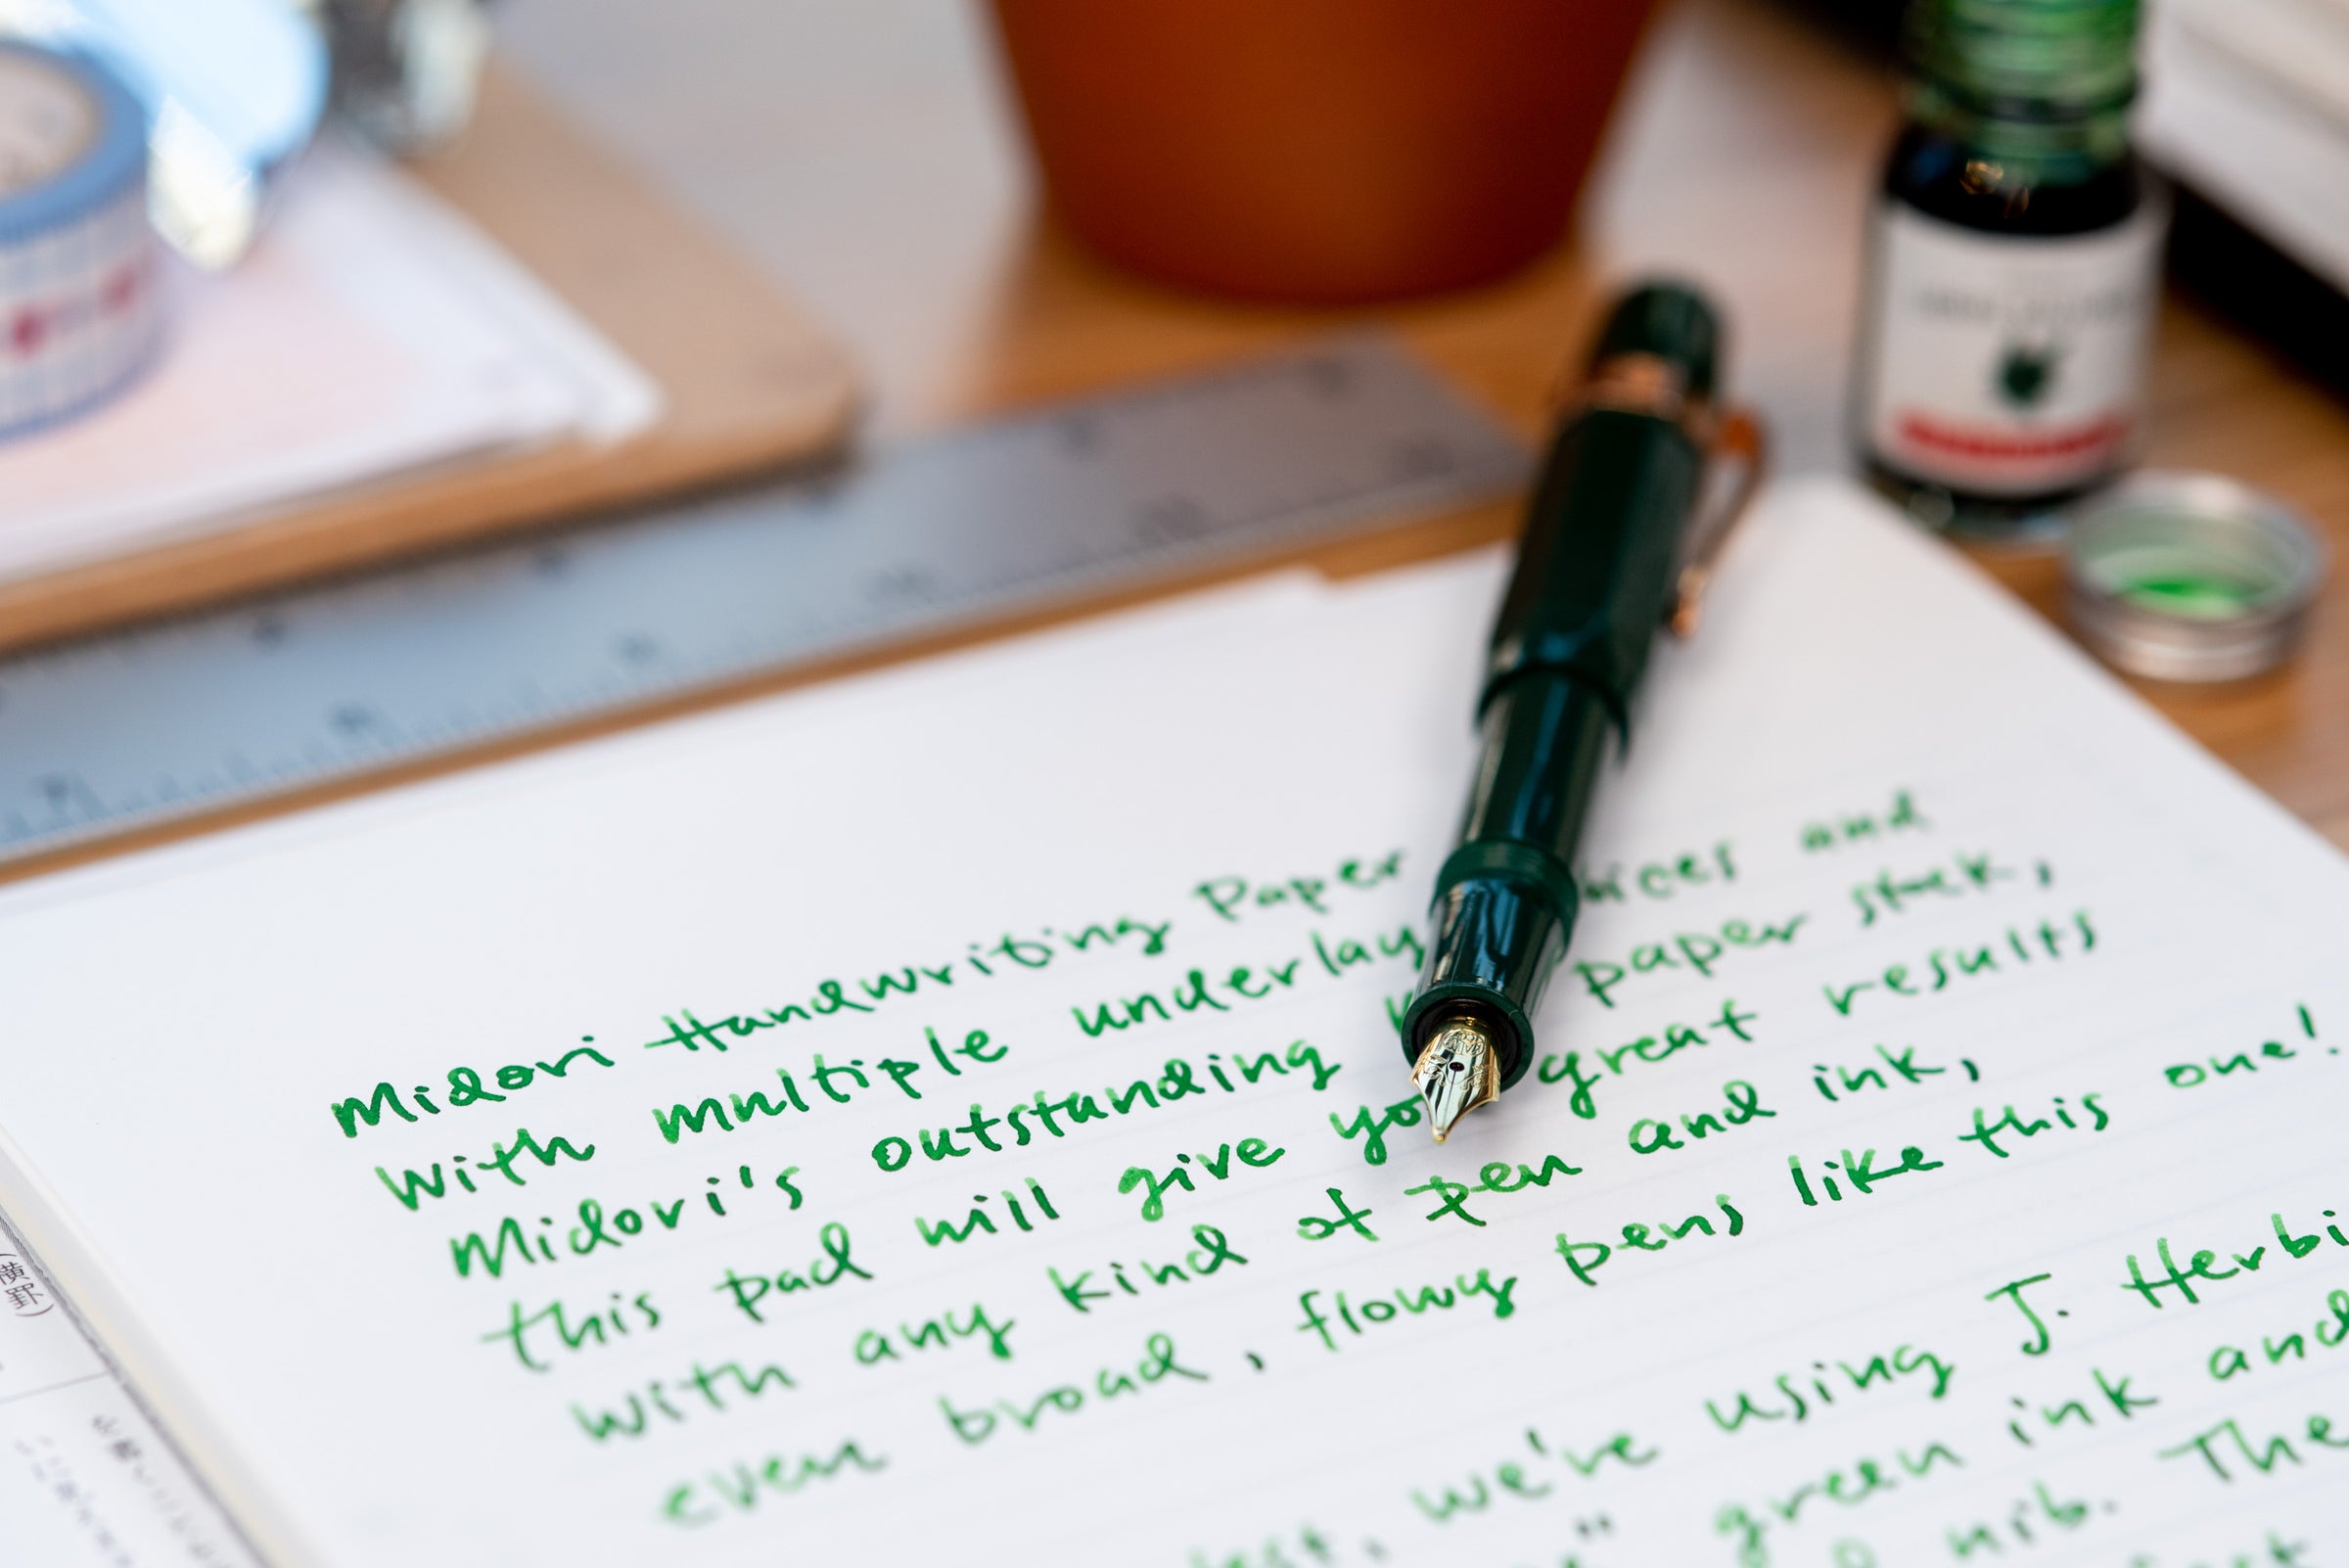 Midori Handwriting Paper
with multiple underlay and
Midori's outstanding paper stock,
this pad will give you great results
with any kind of pen and ink,
even broad, flowy pens like this one!
we're using J. Herbi
green ink and
nib. The
(横罫)